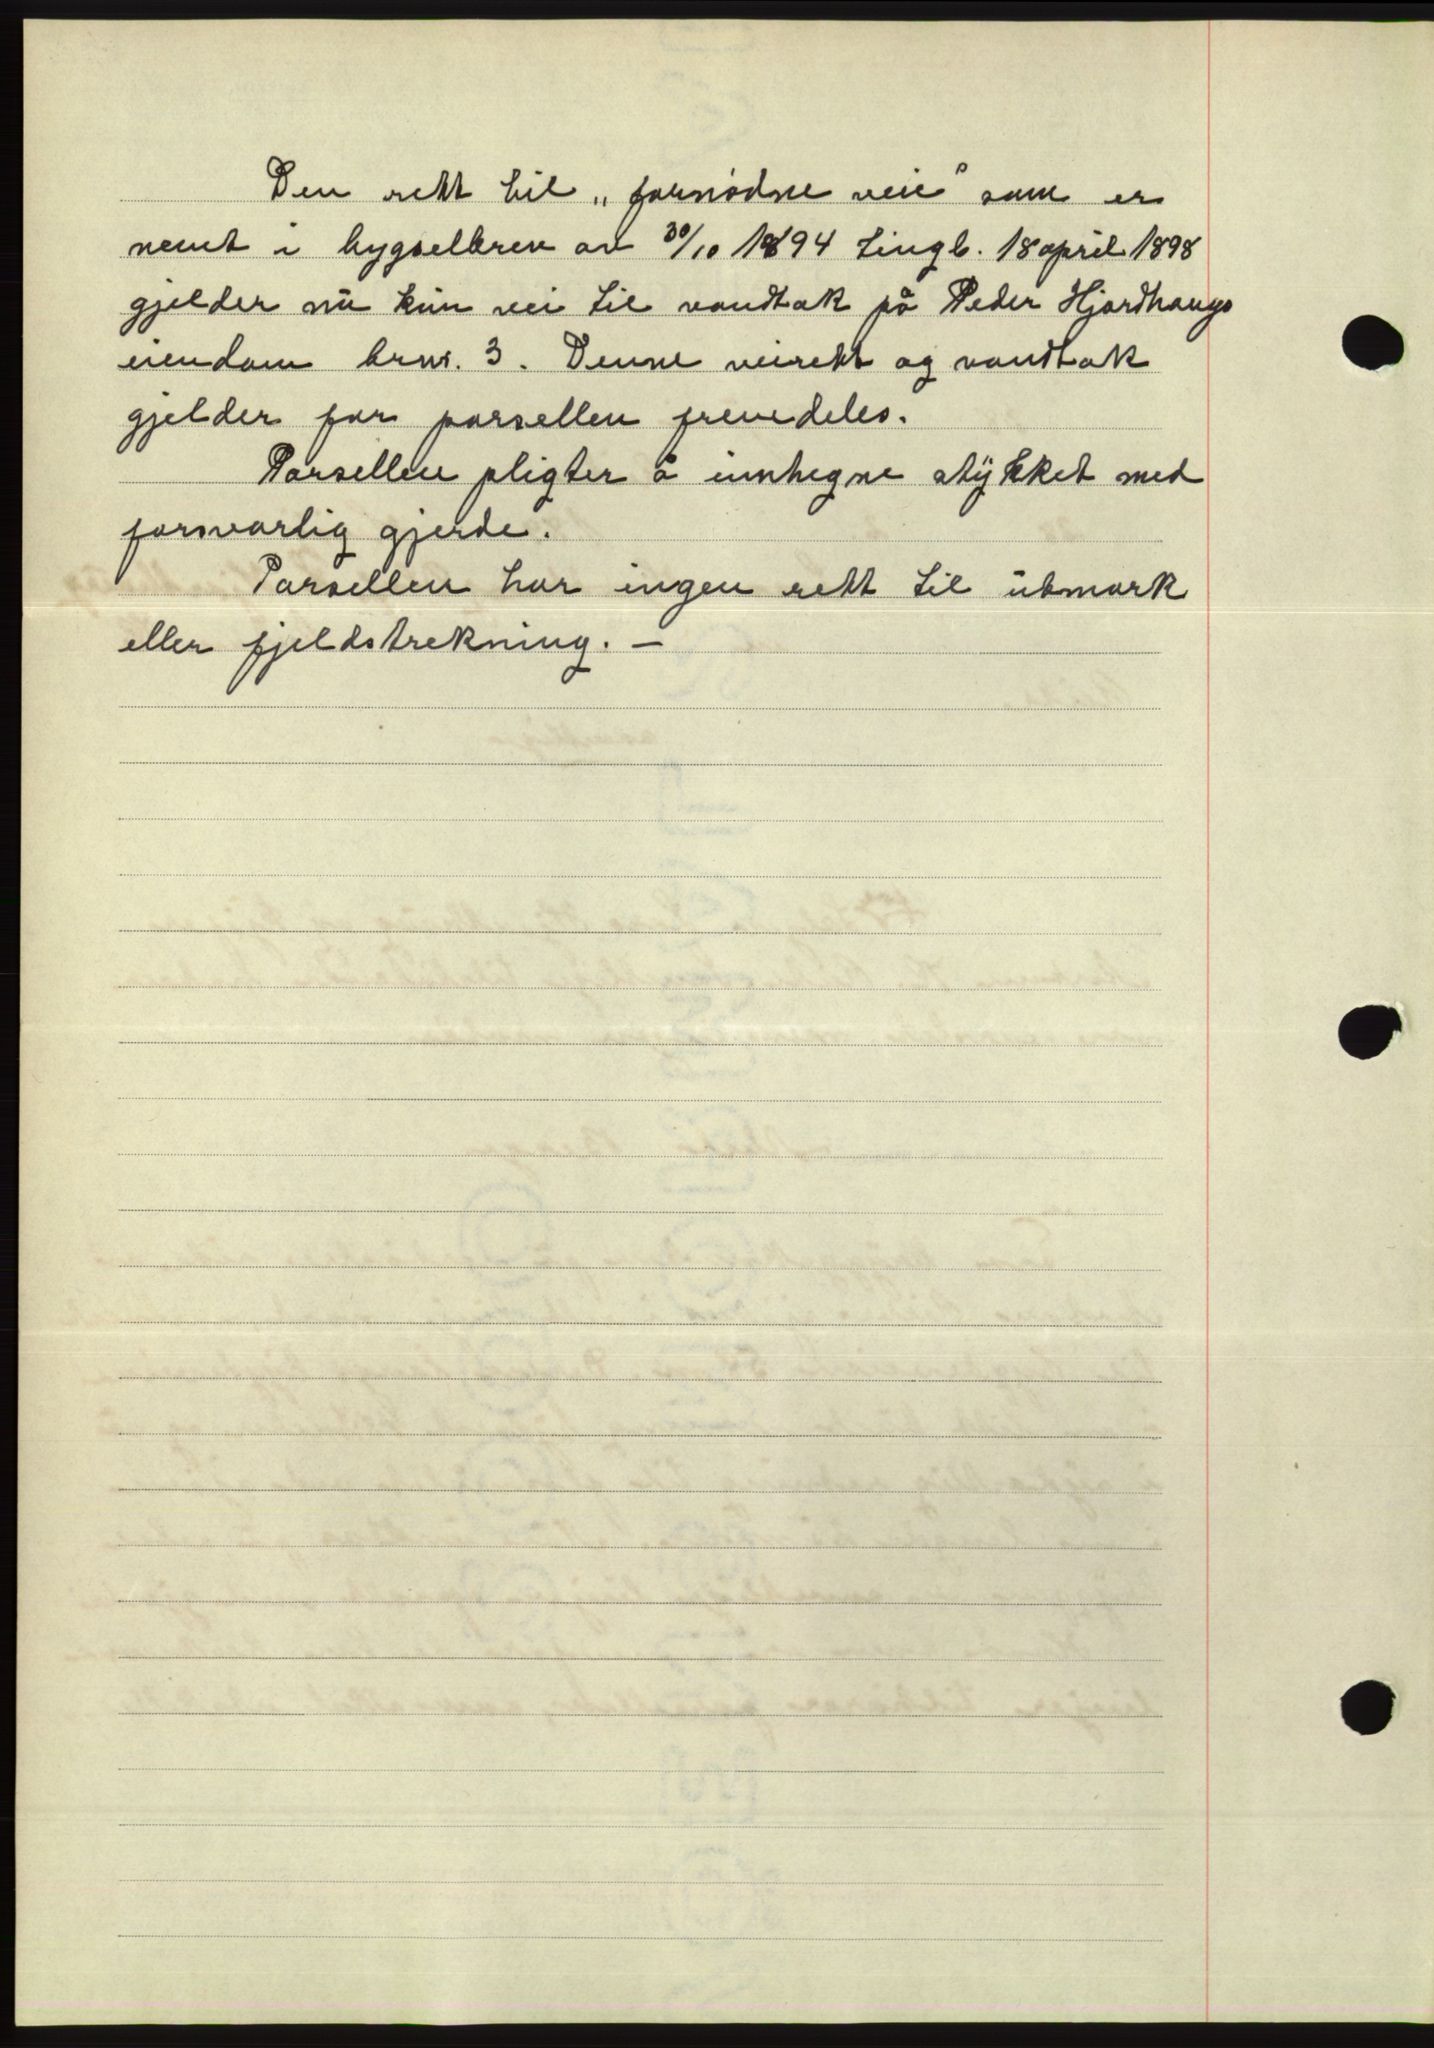 Den rett til „fornødne veie" som er
nemt i bygselbrev av 30/10 1894 tingl. 18 april 1898
gjelder nu kun vei til vandtak på Peder Hjordhaugs
eiendom brnr. 3. Denne veirett og vandtak
gjelder for parsellen fremdeles.
Parsellen pligter å innhegne stykket med
forsvarlig gjerde.
Parsellen har ingen rett til utmark
eller fjeldstrekning. —